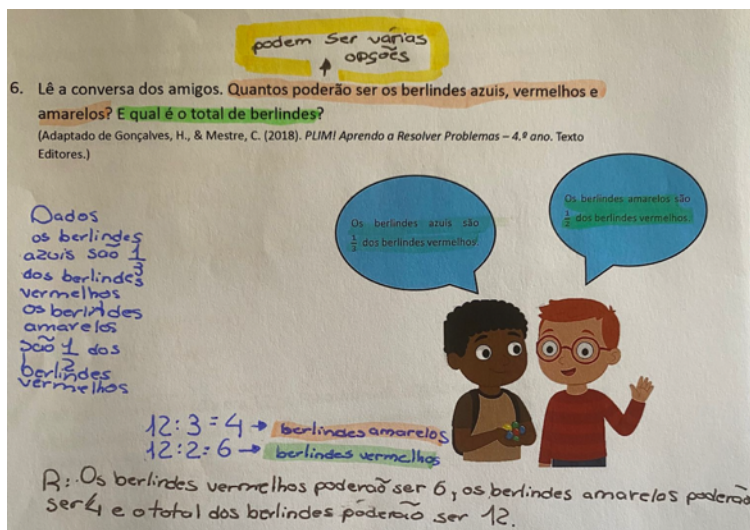 podem ser várias
opções
6. Lê a conversa dos amigos. Quantos poderão ser os berlindes azuis, vermelhos e
amarelos? E qual é o total de berlindes?
(Adaptado de Gonçalves, H., & Mestre, C. (2018). PLIM! Aprendo a Resolver Problemas – 4.º ano. Texto
Editores.)
Os berlindes amarelos são
1/2 dos berlindes vermelhos.
Os berlindes azuis são
1/3 dos berlindes vermelhos.
Dados
os berlindes
azuis são 1/3
dos berlindes
vermelhos
os berlindes
amarelos
são 1/2 dos
berlindes
vermelhos
12:3=4 → berlindes amarelos
12:2=6 → berlindes vermelhos
R: Os berlindes vermelhos poderão ser 6, os berlindes amarelos poderão
ser 4 e o total dos berlindes poderão ser 12.